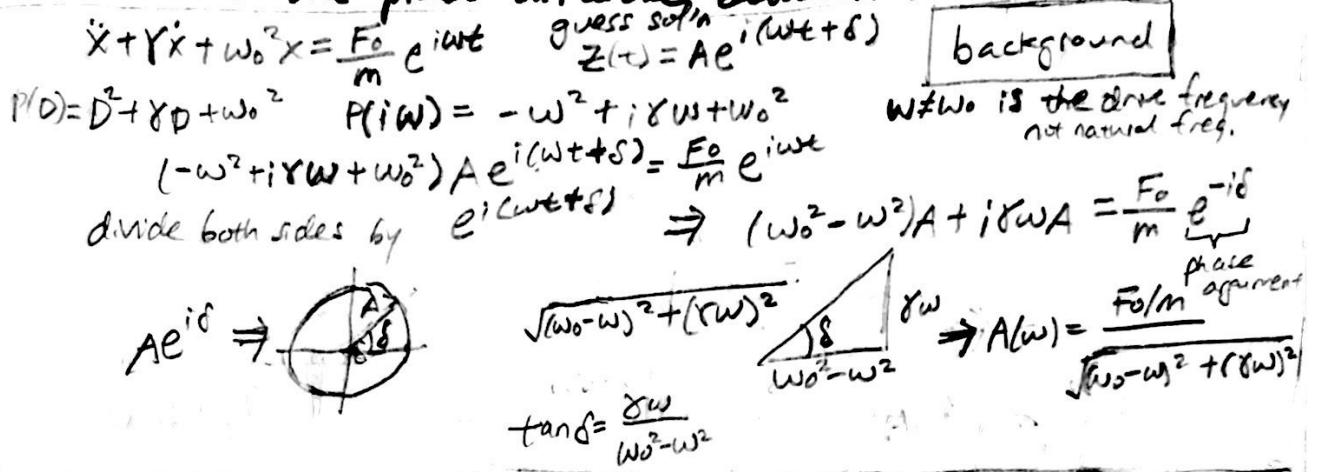 ẍ + γẋ + ω₀²x = F₀/m e^{iωt} guess sol'n z(t) = Ae^{i(ωt+δ)} background
P(D) = D² + γD + ω₀² P(iω) = -ω² + iγω + ω₀² ω≠ω₀ is the drive frequency not natural freq.
(-ω² + iγω + ω₀²) A e^{i(ωt+δ)} = F₀/m e^{iωt}
divide both sides by e^{i(ωt+δ)} ⇒ (ω₀² - ω²)A + iγωA = F₀/m e^{-iδ}
phase argument
Ae^{iδ} ⇒ A δ √((ω₀-ω)² + (γω)²) δ γω ω₀²-ω² ⇒ A(ω) = F₀/m / √((ω₀-ω)² + (γω)²)
tanδ = γω / ω₀²-ω²